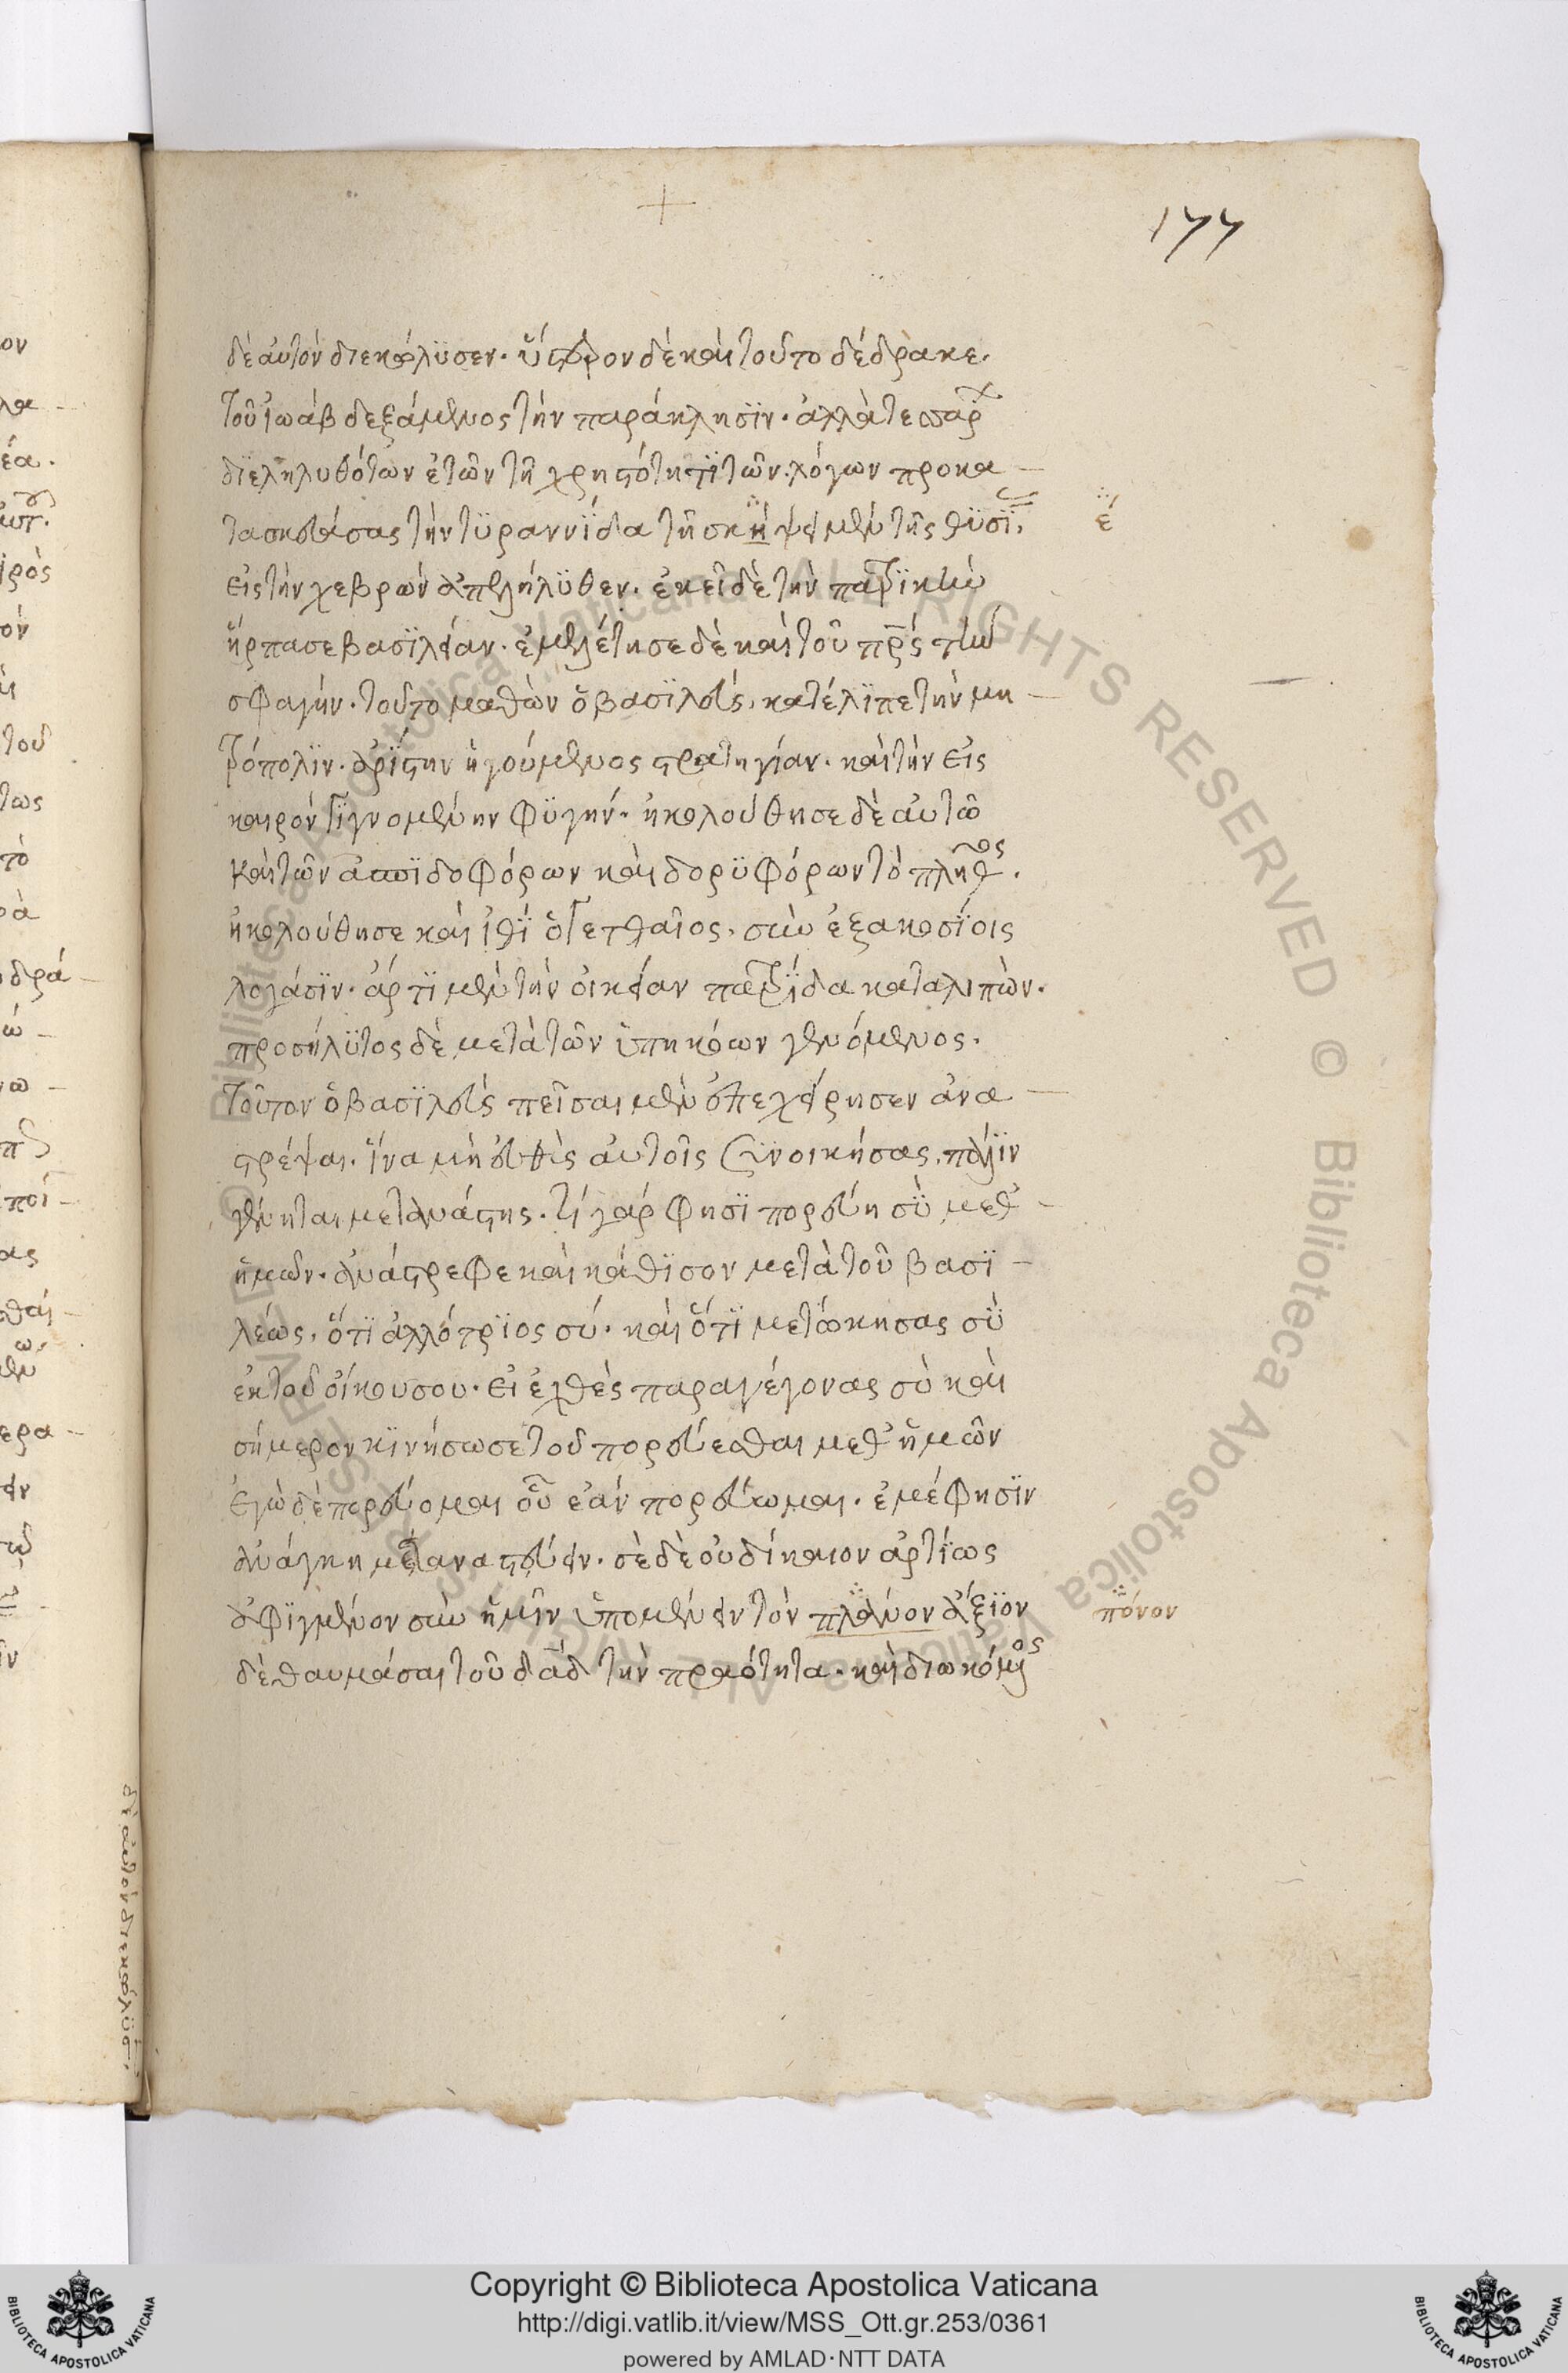 177
δὲ αὐτὸν διεκώλϋσεν. ὕστερον δὲ καὶ τοῦτο δέδρακε.
τοῦ ἰωὰβ δεξάμενος τὴν παράκλησϊν. ἀλλὰ τεσσάρ
διεληλυθότων ἐτῶν τῆ χρηστότητϊ τῶν λόγων προκα
τασκευάσας τὴν τϋραννΐδα τῆ σκήψει μὲν τῆς θϋσΐ
έ
εἰς τὴν χεβρὼν ἀπελήλϋθεν. ἐκεῖ δὲ τὴν πατρϊκὴν
ἥρπασε βασϊλείαν. ἐμελέτησε δὲ καὶ τοῦ πρς τὴν
σφαγήν. τοῦτο μαθὼν ὁ βασϊλεὺς, κατέλϊπε τὴν μη
τρόπολϊν. ἀρΐστην ἡγούμενος στρατηγίαν. καὶ τὴν εἰς
καιρὸν γϊγνομένην φϋγήν. ἠκολούθησε δὲ αὐτῶ
καὶ τῶν ἀσπϊδοφόρων καὶ δορϋφόρων τὸ πλῆθος.
ἠκολούθησε καὶ ἰθῒ ὁ γετθαῖος. σὺν ἑξακοσΐοις
λογάσϊν. ἄρτϊ μὲν τὴν οἰκείαν πατρΐδα καταλιπὼν.
προσήλϋτος δὲ μετὰ τῶν ὑπηκόων γενόμενος.
τοῦτον ὁ βασϊλεὺς πεῖσαι μὲν ἐπεχείρησεν ἀνα
στρέψαι. ἵνα μὴ εὐθὺς αὐτοῖς ξϋνοικήσας, πάλϊν
γένηται μετανάστης. τί γάρ φησϊ πορεύη σῢ μεθ᾽
ἡμῶν. ἀνάστρεφε καὶ κάθϊσον μετὰ τοῦ βασϊ
λέως, ὅτϊ ἀλλότρϊος σύ. καὶ ὅτϊ μετώκησας σῢ
ἐκ τοῦ οἴκου σου. εἰ ἐχθὲς παραγέγονας σὺ καὶ
σήμερον κϊνήσω σε τοῦ πορεύεσθαι μεθ᾽ ἡμῶν
ἐγὼ δὲ πορεύομαι οὗ ἐὰν πορεύωμαι. ἐμέ φησϊν
ἀνάγκη μεταναστεύειν. σὲ δὲ οὐ δίκαιον ἀρτΐως
ἀφϊγμένον σὺν ἡμῖν ὑπομένειν τὸν πλάνον ἄξϊον
πόνον
δὲ θαυμάσαι τοῦ δαδ τὴν πραότητα. καὶ διωκόμενος